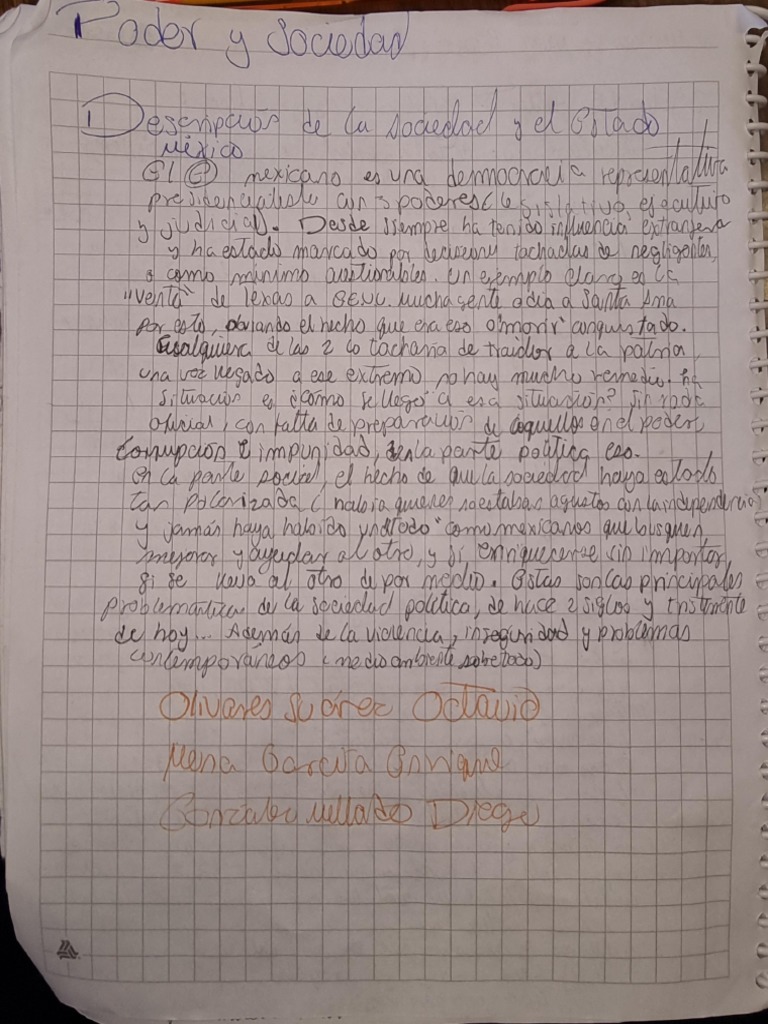 Poder y sociedad
1 Descripción de la sociedad y el Estado
México
El Ⓔ mexicano es una democracia representativa
presidencialista con 3 poderes (legislativo, ejecutivo
y judicial). Desde siempre ha tenido influencia extranjera
y ha estado marcado por decisiones tachadas de negligentes,
o como mínimo cuestionables. Un ejemplo claro es la
"venta" de Texas a EEUU. Mucha gente odia a Santa Ana
por esto, obviando el hecho que era eso o morir conquistado.
Cualquiera de las 2 lo tacharía de traidor a la patria,
una vez llegado a ese extremo no hay mucho remedio. La
situación es ¿cómo se llegó a esa situación? Sin
oficial, con falta de preparación de aquellos en el poder,
corrupción e impunidad, en la parte política eso.
En la parte social, el hecho de que la sociedad haya estado
tan polarizada (había quienes no estaban agustos con la independencia)
y jamás haya habido un "todo" como mexicanos que busquen
mejorar y ayudar al otro, y si enriquecerse sin importar
si se lleva al otro de por medio. Estas son las principales
problemáticas de la sociedad política, de hace 2 siglos y tristemente
de hoy... Además de la violencia, inseguridad y problemas
contemporáneos (medio ambiente sobre todo)
Olivares Suárez Octavio
Mena García Enrique
González Mellado Diego